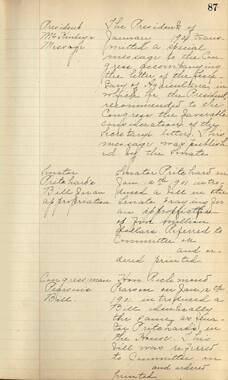 87
President The President of
McKinley's January 1901 trans
Message mitted a special
message to the Con
gress accompanying
the letter of the Secre
tary of Agriculture, in
which he the President
recommended to the
Congress the favorable
consideration of the
Secretarys letter. This
message was publish
ed by the Senate
Senator Senator Pritchard on
Pritchard's Jan 1901 intro
Bill for an duced a Bill in the
appropriation Senate praying for
an appropriation
of five million
dollars Referred to
Committee on
and or
dered printed
Congressman Hon Richmond
Pearson's Pearson on Jan
Bill. 1901 introduced a
Bill identically
the same as Sena
tor Pritchards in
the House. This
bill was referred
to Committee on
and ordered
printed